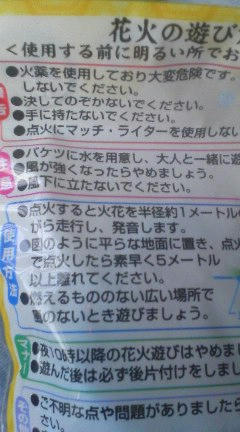 花火の遊び
<使用する前に明るい所でお
●火薬を使用しており大変危険です。
しないでください。
●決してのぞかないでください。
●手に持たないでください。
●点火にマッチ・ライターを使用しない
●バケツに水を用意し、大人と一緒に遊
●風が強くなったらやめましょう。
●風下に立たないでください。
使用方法
●点火すると火花を半径約1メートル
がら走行し、発音します。
●図のように平らな地面に置き、点火
で点火したら素早く5メートル
以上離れてください。
●燃えるもののない広い場所で
風のないとき遊びましょう。
マナー
●夜10時以降の花火遊びはやめま
●遊んだ後は必ず後片付けをしま
その
●ご不明な点や問題がありましたら
さい。